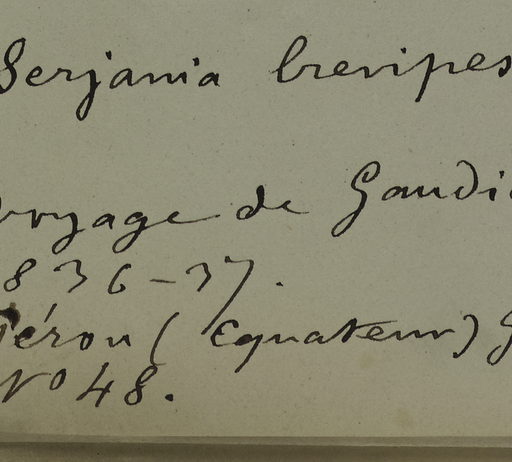 Serjania brevipes
voyage de Gaudi
836-37.
Pérou (Equateur) G
No 48.